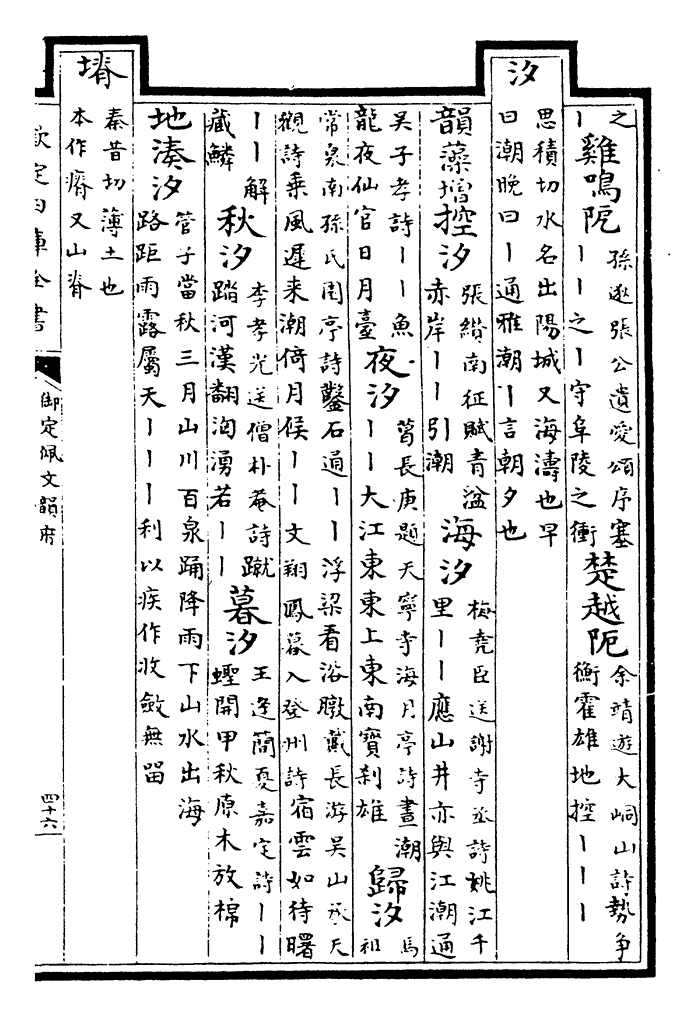 之
丨
雞鳴阨
孫逖張公遺愛頌序塞
丨丨之丨守阜陵之衝
楚越阨
余靖遊大峒山詩勢争
衡霍雄地控丨丨丨
汐
思積切水名出陽城又海濤也早
曰潮晚曰丨通雅潮丨言朝夕也
韻藻增控汐
張纘南征賦青湓
赤岸丨丨引潮
海汐
梅堯臣送謝寺丞詩姚江千
里丨丨應山井亦與江潮通
吴子孝詩丨丨魚
龍夜仙官日月臺
夜汐
葛長庚題天寧寺海月亭詩晝潮
丨丨大江東東上東南寳刹雄
歸汐
馬
祖
常泉南孫氏園亭詩鑿石通丨丨浮梁看浴暾戴長游吴山丞天
觀詩乘風遲来潮倚月候丨丨文翔鳳暮入登州詩宿雲如待曙
丨丨解
藏鱗
秋汐
李孝光送僧朴菴詩蹴
踏河漢翻洶湧若丨丨
暮汐
王逢簡夏嘉定詩丨丨
蟶開甲秋原木放棉
地湊汐
管子當秋三月山川百泉踊降雨下山水出海
路距雨露屬天丨丨丨利以疾作收斂無留
塉
秦昔切薄土也
本作瘠又山脊
欽定四庫全書
御定佩文韻府
四十六